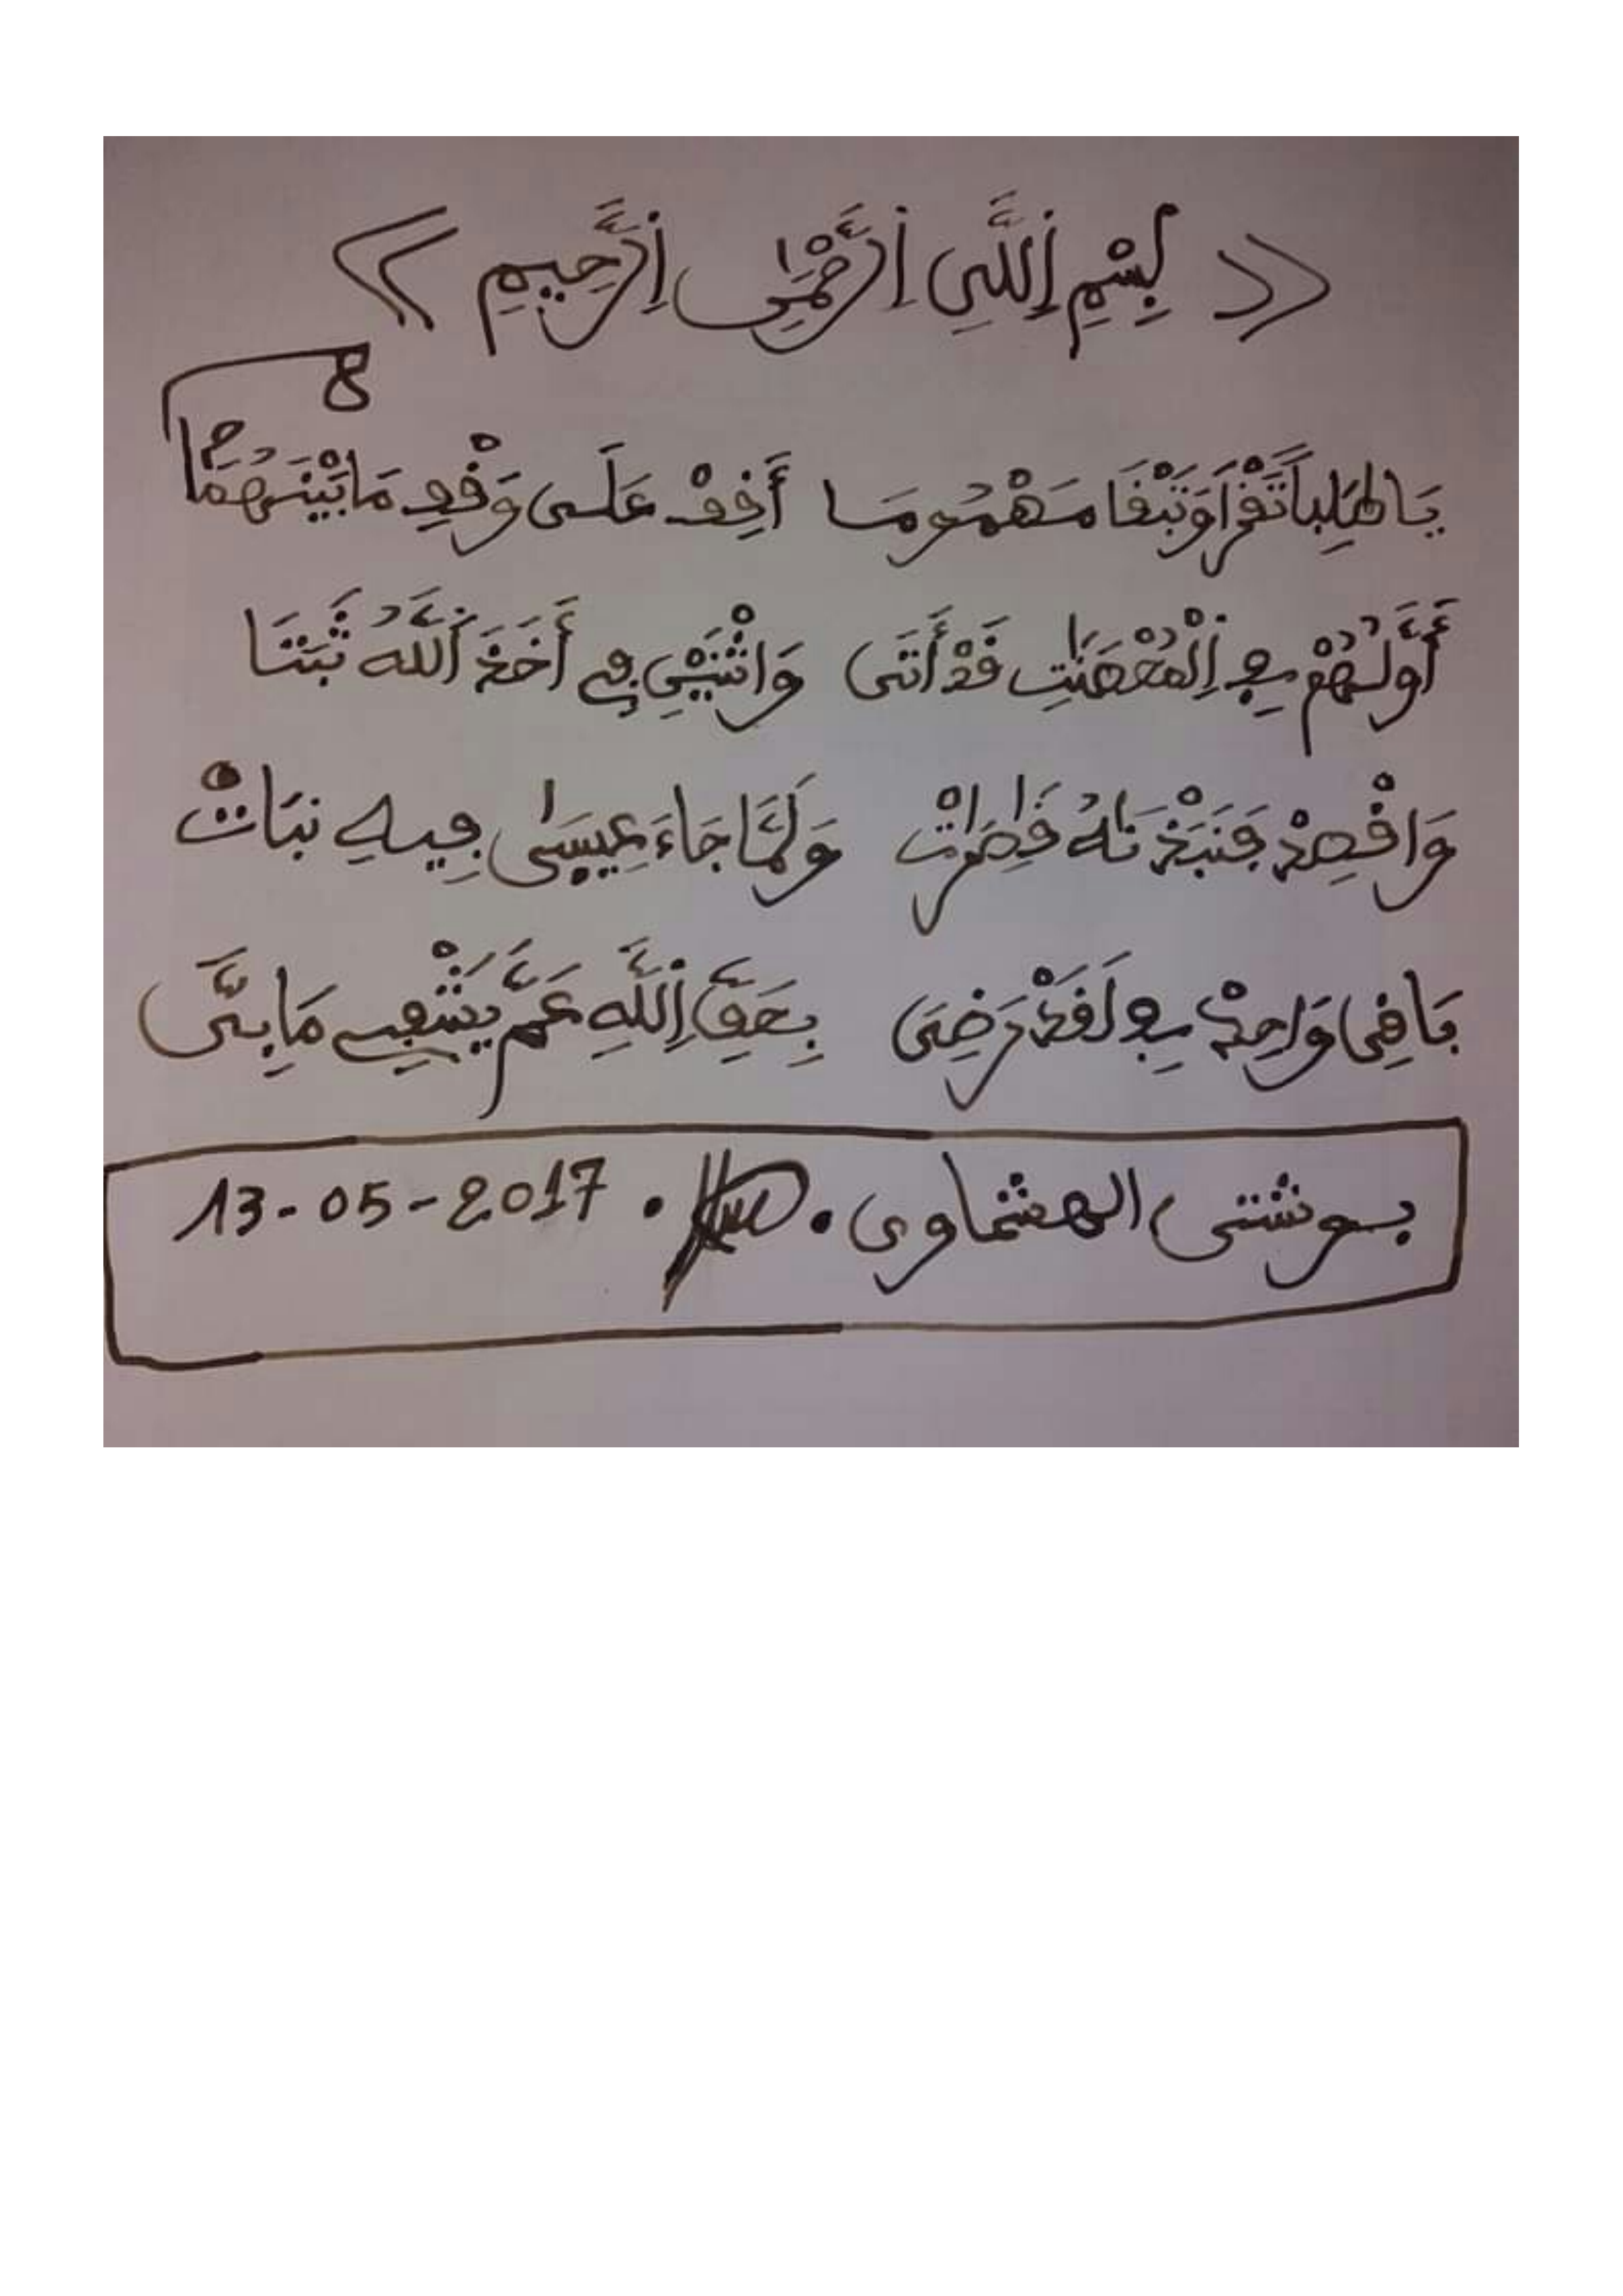 << بِسْمِ اِللَّهِ اِلرَّحْمَٰنِ اِلرَّحِيمِ >>
يَا طَالِباً تَقْرَأ وَتَبْقَا مَهْمُومَا أَقِفْ عَلَى وَقْفِ مَا بَيْنَهُمَا
أَوَّلُهُمْ فِي اِلْمُحْصَنَٰتِ قَدْ أَتَى وَاثْنَيْنِ فِي أَخَذَ أَللَّهُ ثَبَتَا
وَاقْصِدْ فَنَبَذْنَٰهُ قَٰصِرَٰتْ وَلَمَّا جَاءَ عِيسَىٰ فِيهِ نَبَاتْ
بَاقِي وَاحِدْ فِي لَقَدْ رَضِيَ بِحَقِّ اِللَّهِ عَمَّ يَشْفِي مَا بِيَّ
بوشتى الهشماوي . . 13-05-2017